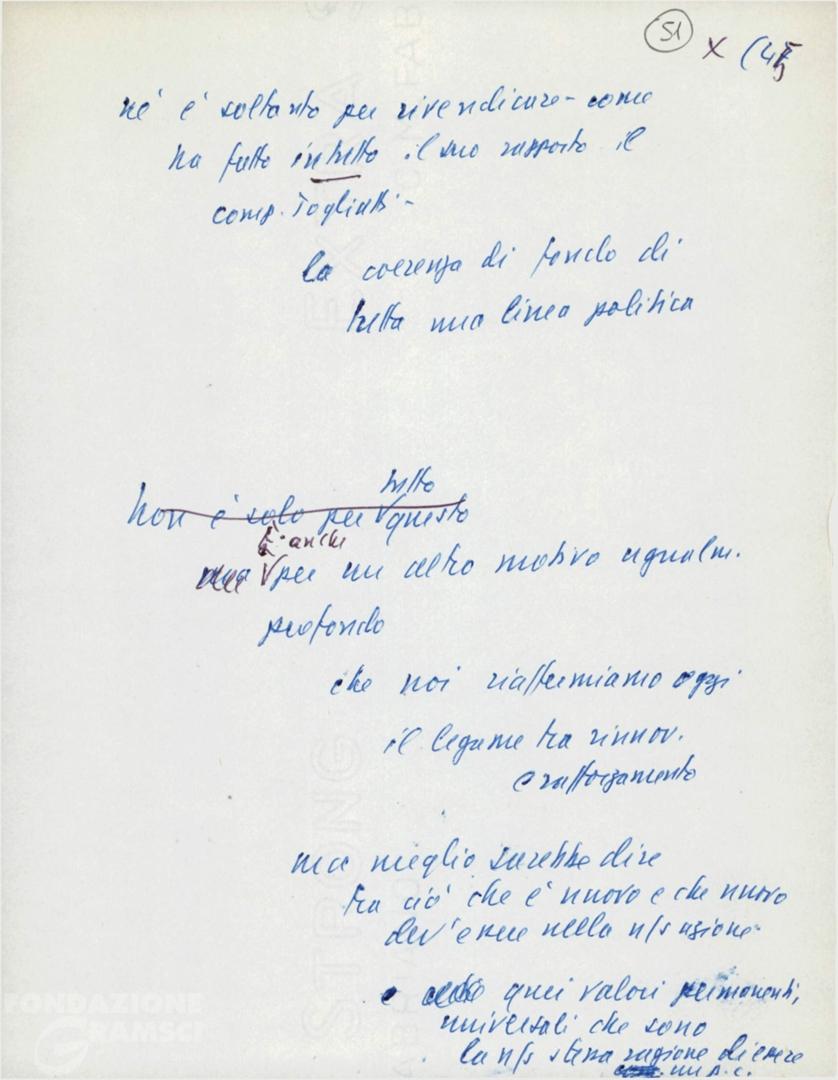 51 X (45
né è soltanto per rivendicare - come
ha fatto in tutto il suo rapporto il
comp. Togliatti -
la coerenza di fondo di
tutta una linea politica
tutto
Non è solo per questo
È anche
ma per un altro motivo ugualm.
profondo
che noi riaffermiamo oggi
il legame tra rinnov.
e rafforzamento
ma meglio sarebbe dire
tra ciò che è nuovo e che nuovo
dev'essere nella n/s azione
e quei valori permanenti,
universali che sono
la n/s stessa ragione di essere
un p.c.
FONDAZIONE
GRAMSCI
EXTRA
STRONG
FAB